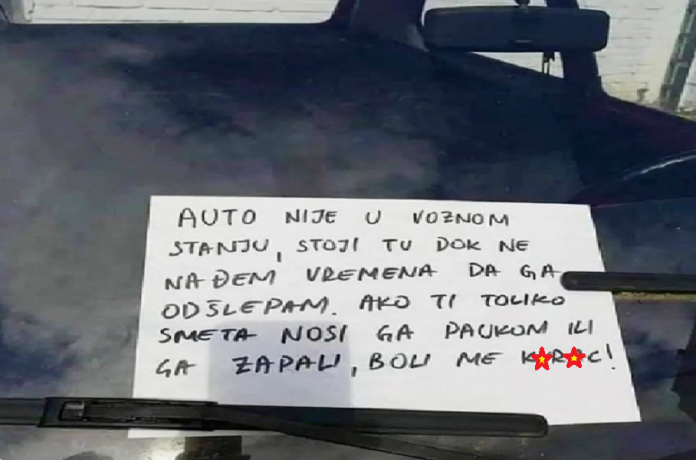 AUTO NIJE U VOZNOM
STANJU, STOJI TU DOK NE
NAĐEM VREMENA DA GA
ODŠLEPAM. AKO TI TOLIKO
SMETA NOSI GA PAUKOM ILI
GA ZAPALI, BOLI ME K★R★C!